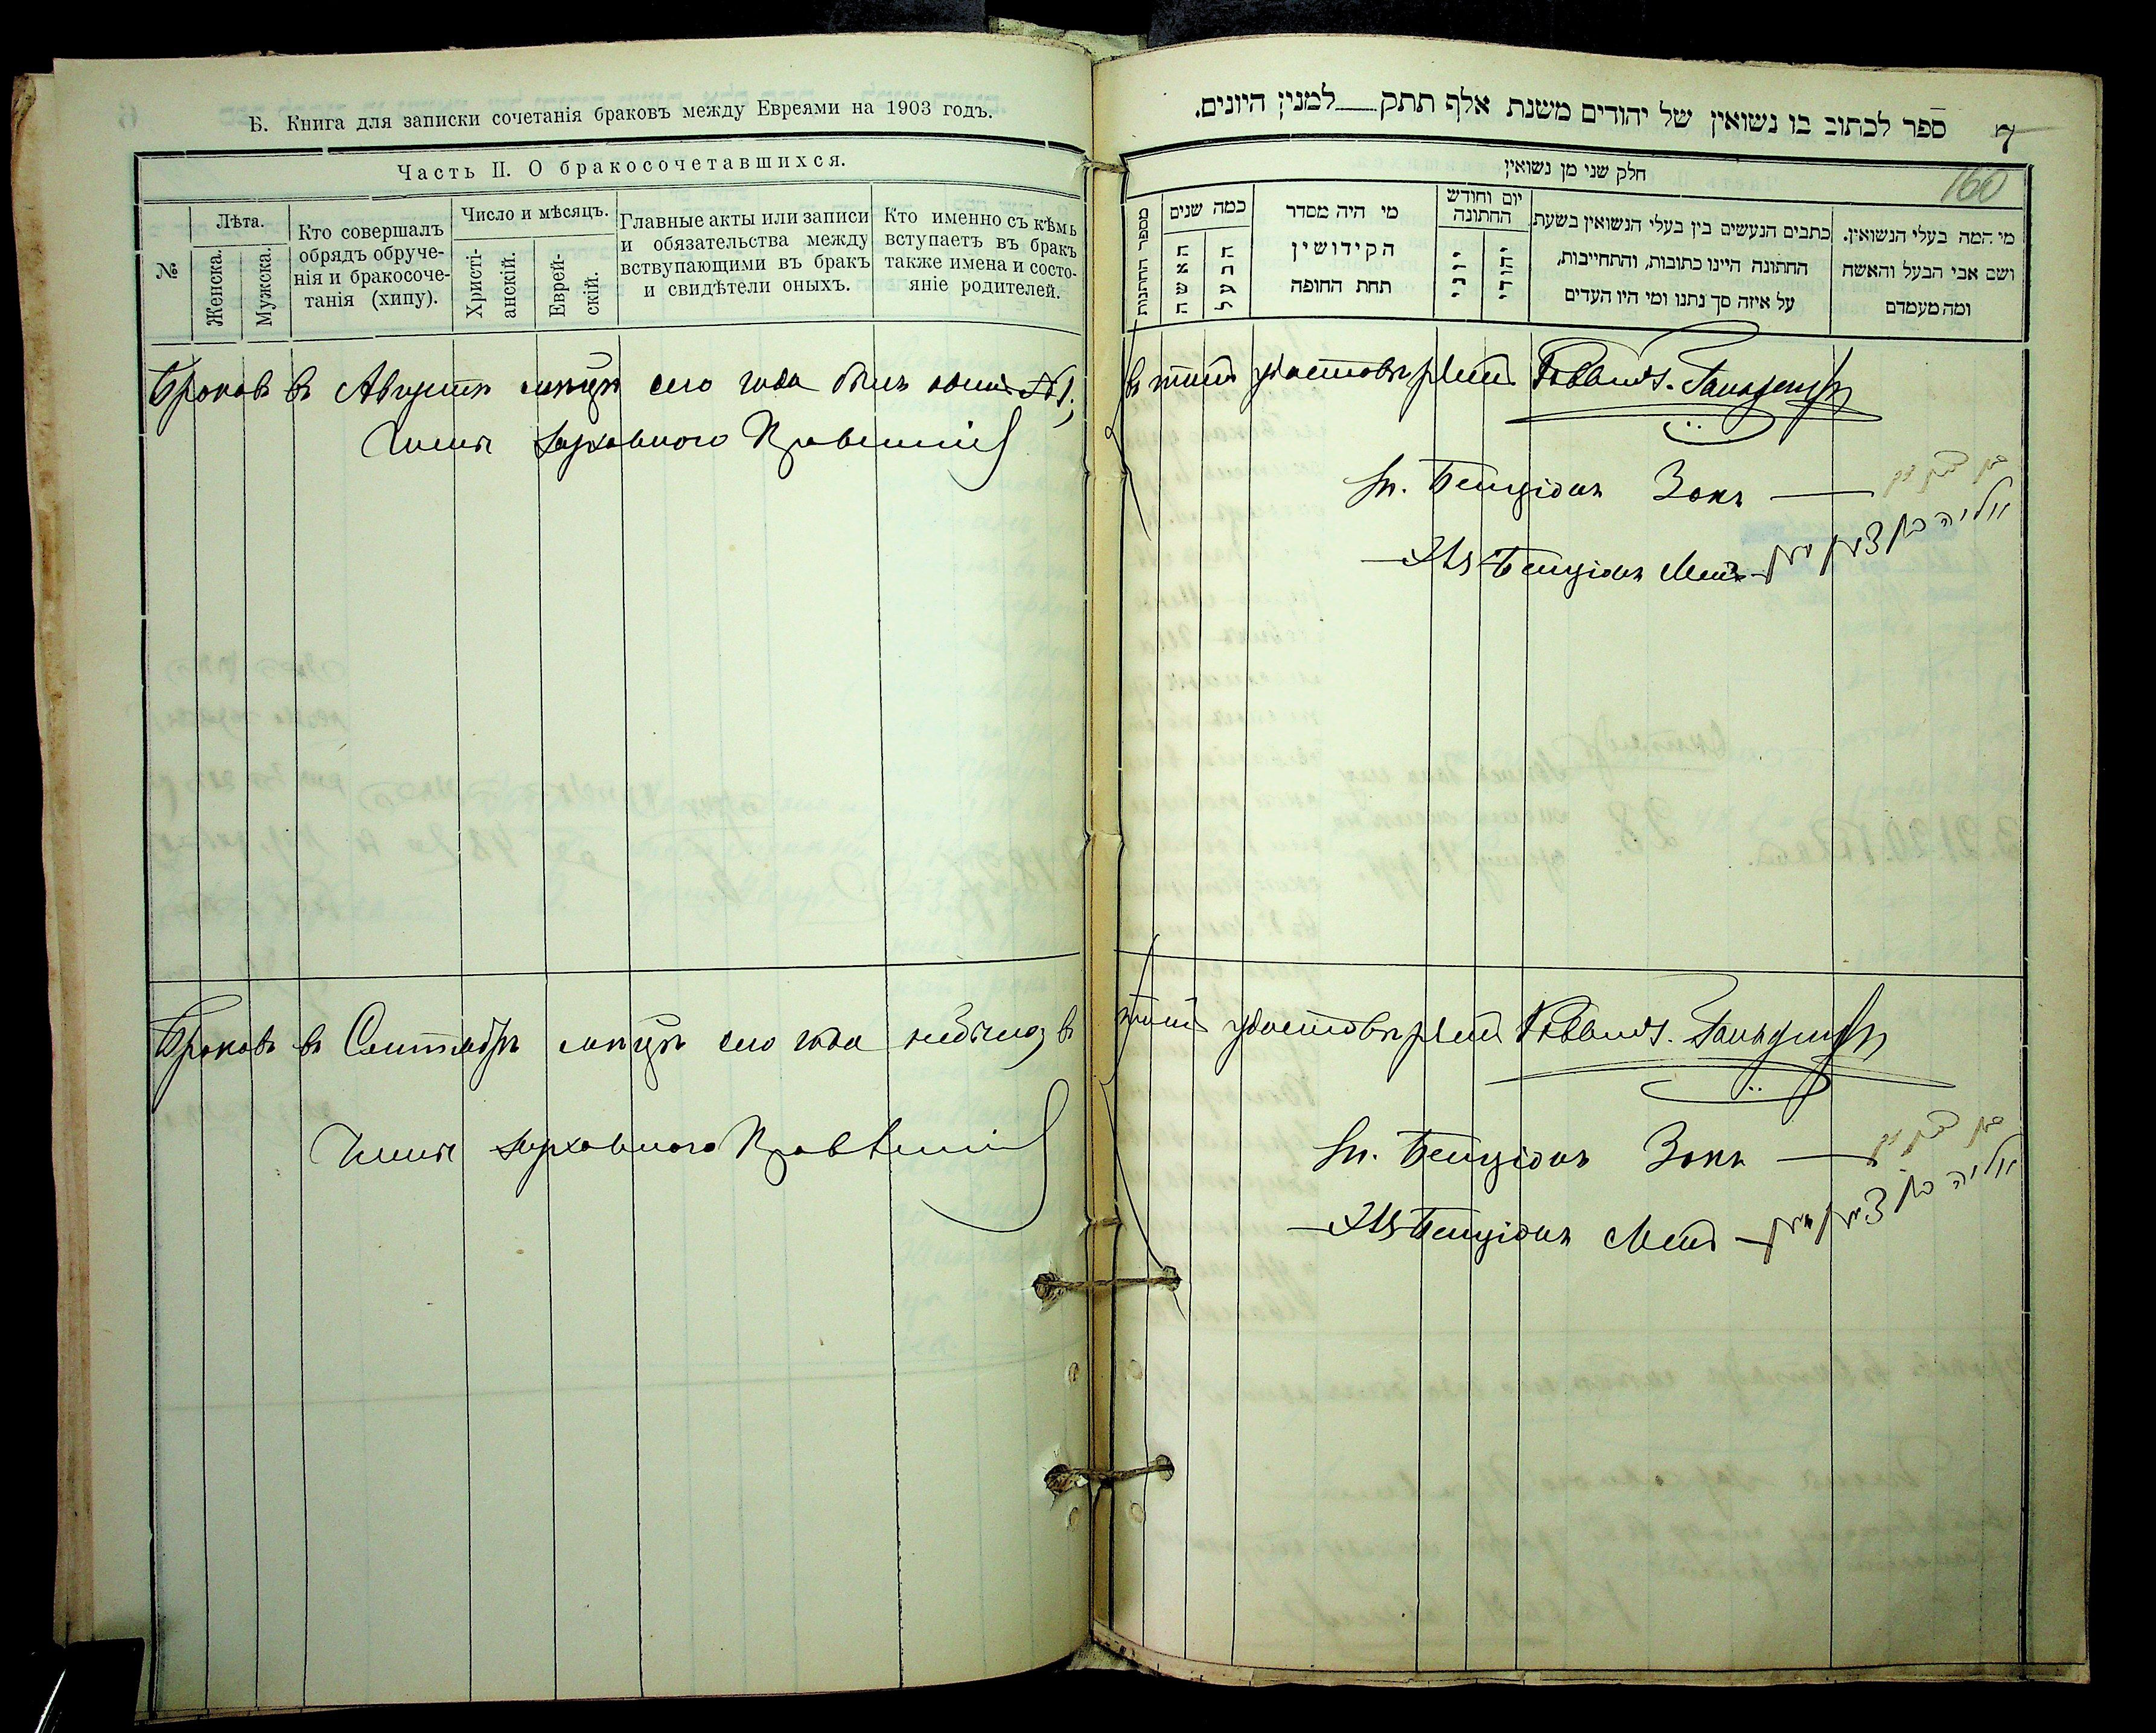 Б. Книга для записки сочетанія браковъ между Евреями на 1903 годъ.
Часть II. О бракосочетавшихся.
№
Лѣта.
Женска.
Мужска.
Кто совершалъ
обрядъ обруче-
нія и бракосоче-
танія (хипу).
Число и мѣсяцъ.
Христі-
анскій.
Еврей-
скій.
Главные акты или записи
и обязательства между
вствупающими въ бракъ
и свидѣтели оныхъ.
Кто именно съ кѣмъ
вступаетъ въ бракъ
также имена и состо-
яніе родителей.
Браковъ въ Августѣ мѣсяцѣ сего года былъ одинъ №1.
Члены духовнаго Правленія
Браковъ въ Сентябрѣ мѣсяцѣ сего года небыло, въ
Члены духовнаго Правленія
ספר לכתוב בו נשואין של יהודים משנת אלף תתק למנין היונים.
7
160
חלק שני מן נשואין
מספר החתונות
כמה שנים
האשה
הבעל
מי היה מסדר
הקידושין
תחת החופה
יום וחודש
החתונה
יוני
יהודי
כתבים הנעשים בין בעלי הנשואין בשעת
החתונה היינו כתובות, והתחייבות,
על איזה סך נתנו ומי היו העדים
מי המה בעלי הנשואין.
ושם אבי הבעל והאשה
ומה מעמדם
въ томъ удостовѣряетъ Раввинъ.
Бенціонъ Закъ
Бенціонъ
томъ удостовѣряетъ Раввинъ.
Бенціонъ Закъ
Бенціонъ